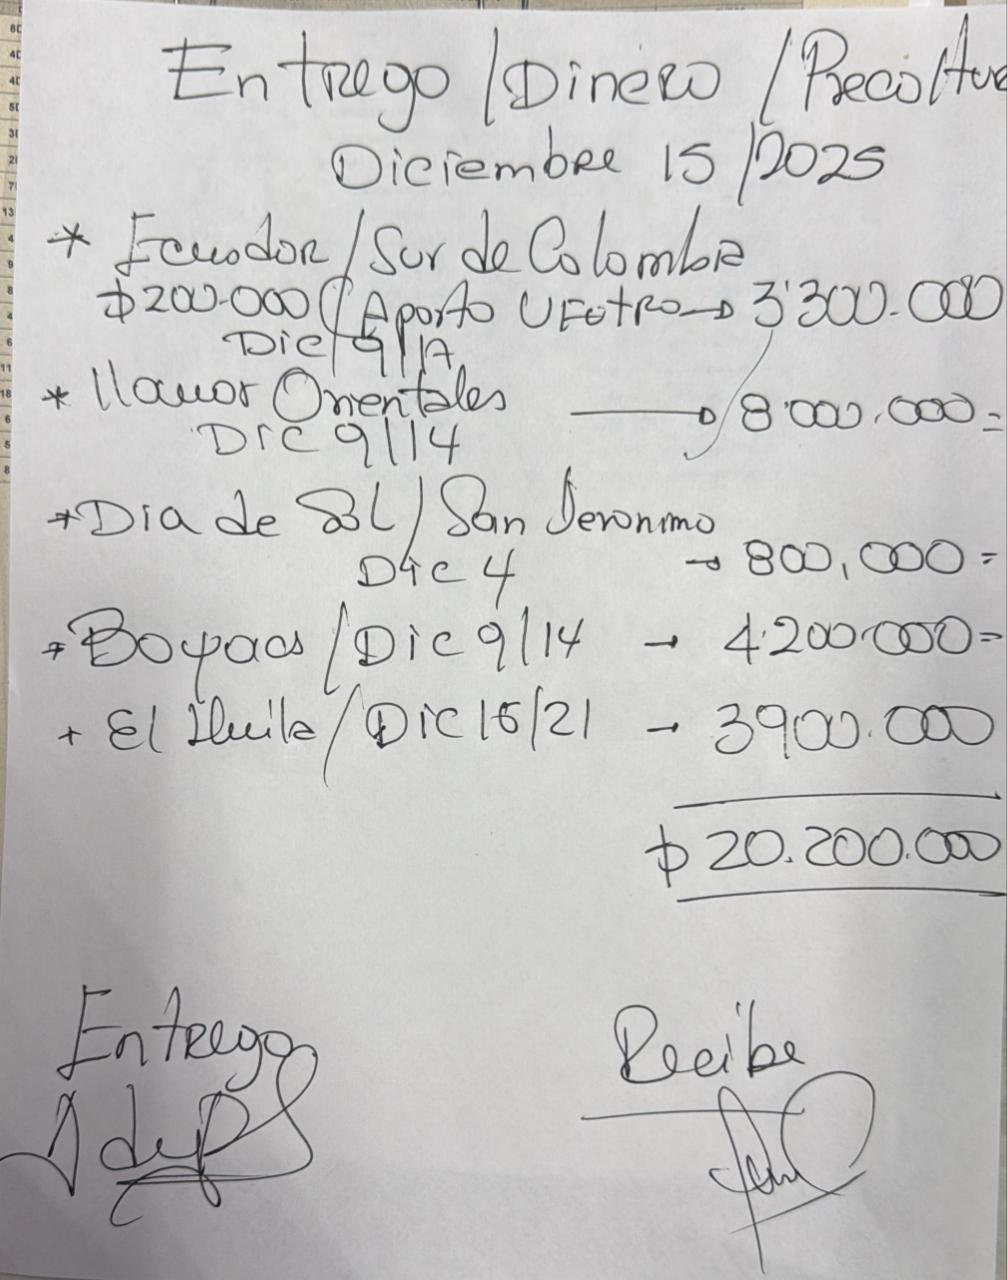 Entrego / Dinero /
Diciembre 15 /2025
* Ecuador / Sur de Colombia
$200.000 (Aporto → 3'300.000
Dic/9/17
* Llanos Orientales → 8'000.000=
Dic 9/14
* Dia de Sol / San Jeronimo
Dic 4 → 800,000=
* Boyacas / Dic 9/14 → 4.200.000=
+ El Huila / Dic 16/21 → 3900.000
$ 20.200.000
Entrego
Recibe